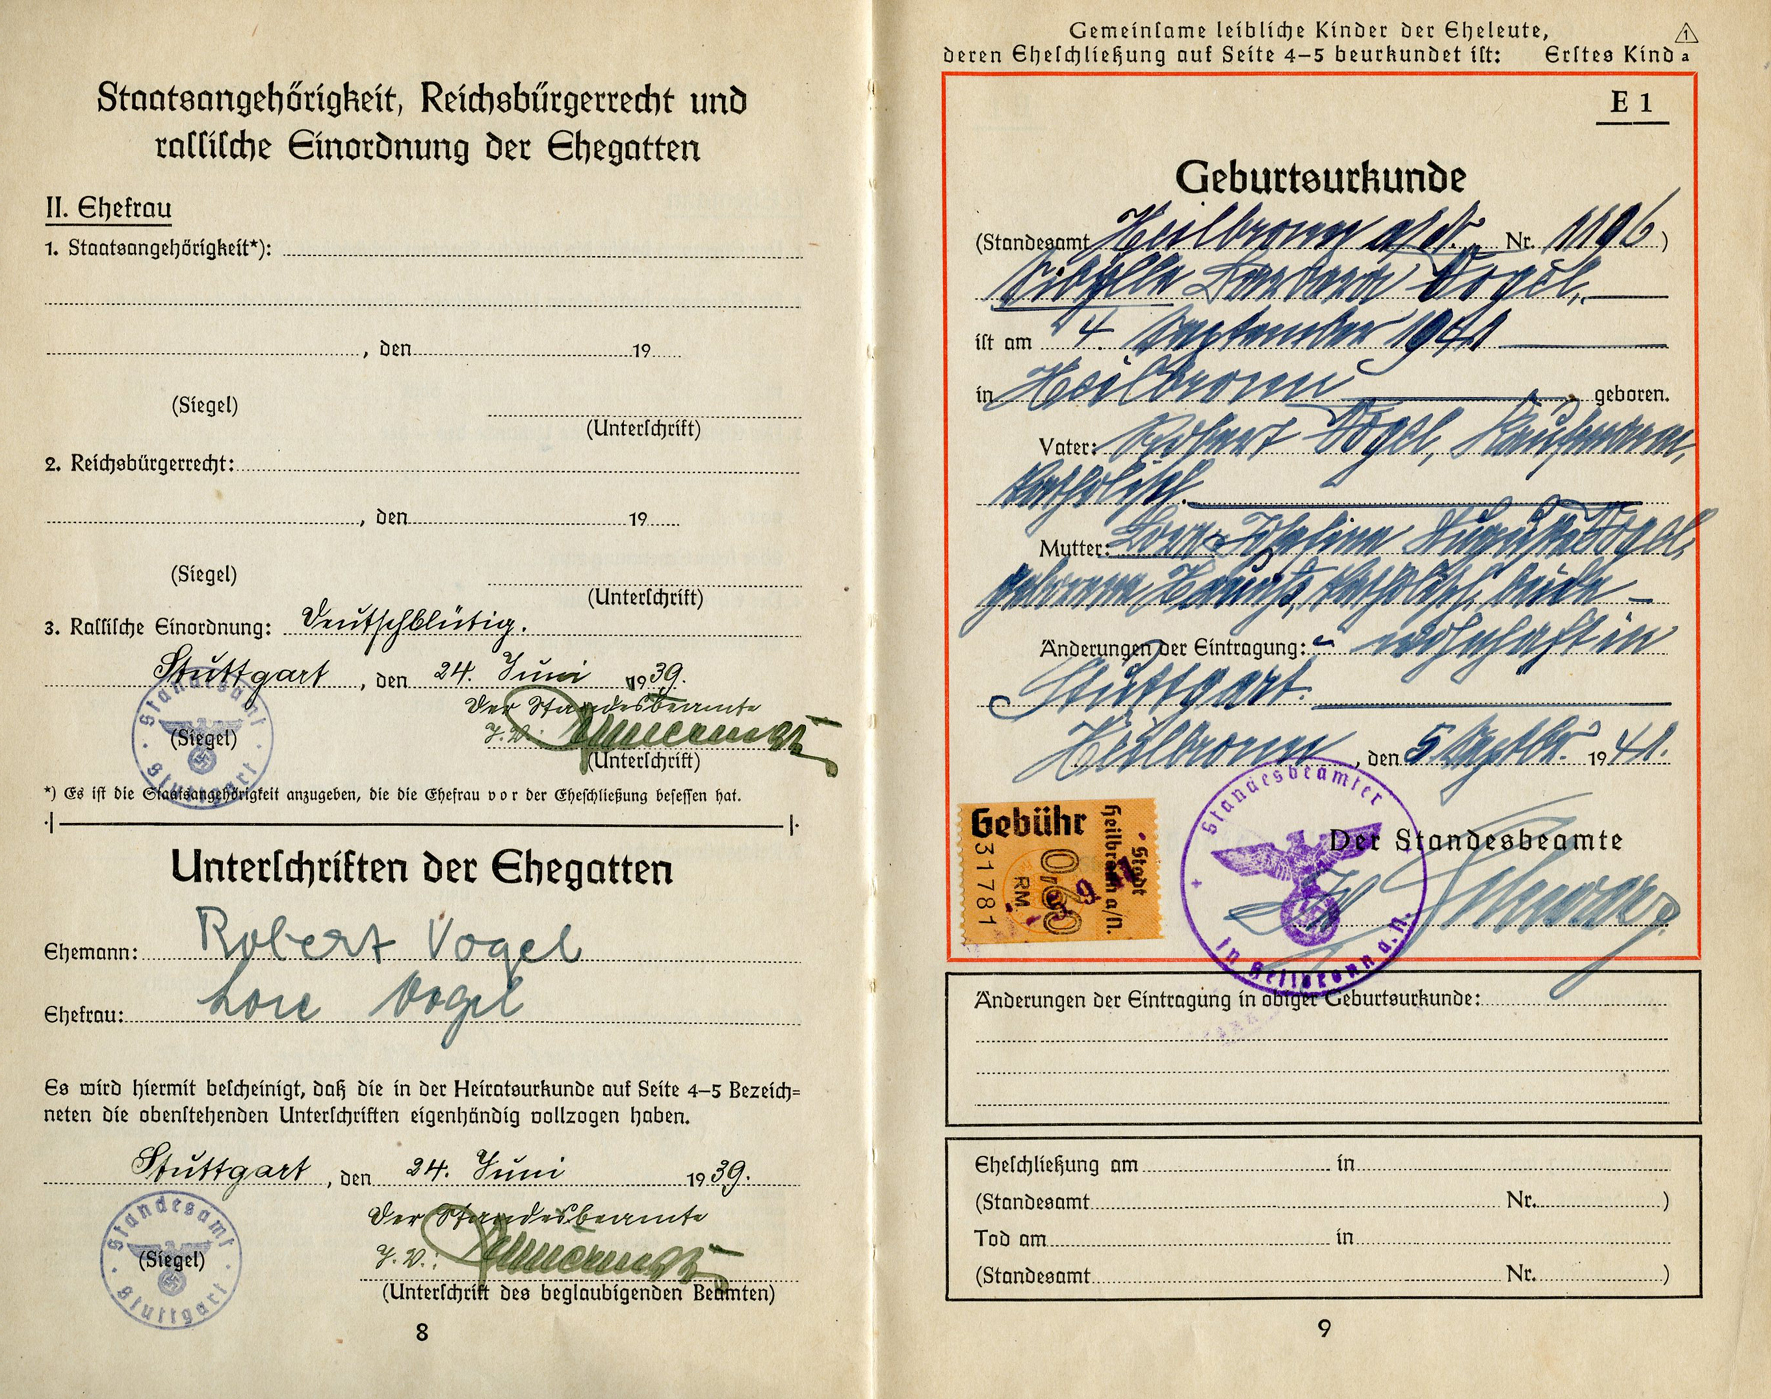 Staatsangehörigkeit, Reichsbürgerrecht und
rassische Einordnung der Ehegatten
II. Ehefrau
1. Staatsangehörigkeit*):
, den 19
(Siegel)
(Unterschrift)
2. Reichsbürgerrecht:
, den 19
(Siegel)
(Unterschrift)
3. Rassische Einordnung: Deutschblütig.
Stuttgart, den 24. Juni 1939.
Der Standesbeamte
J. V.
(Siegel)
(Unterschrift)
Standesamt Stuttgart
*) Es ist die Staatsangehörigkeit anzugeben, die die Ehefrau vor der Eheschließung besessen hat.
Unterschriften der Ehegatten
Ehemann: Robert Vogel
Ehefrau: Lore Vogel
Es wird hiermit bescheinigt, daß die in der Heiratsurkunde auf Seite 4–5 Bezeich=
neten die obenstehenden Unterschriften eigenhändig vollzogen haben.
Stuttgart, den 24. Juni 1939.
Der Standesbeamte
J. V.:
(Siegel)
Standesamt Stuttgart
(Unterschrift des beglaubigenden Beamten)
8
Gemeinsame leibliche Kinder der Eheleute,
deren Eheschließung auf Seite 4–5 beurkundet ist: Erstes Kind 1 a
E 1
Geburtsurkunde
(Standesamt Heilbronn a/N. Nr. 1196)
Sibylle Barbara Vogel,
ist am 4. September 1941
in Heilbronn geboren.
Vater: Robert Vogel, Kaufmann,
katholisch.
Mutter: Lore Auguste Vogel
geborene katholisch, beide
Änderungen der Eintragung: wohnhaft in
Stuttgart.
Heilbronn, den 5. Septbr. 1941.
Gebühr
31781
0,60
RM.
Stadt
Heilbronn a/N.
Standesbeamter
in Heilbronn a. N.
Der Standesbeamte
Änderungen der Eintragung in obiger Geburtsurkunde:
Eheschließung am in
(Standesamt Nr. )
Tod am in
(Standesamt Nr. )
9